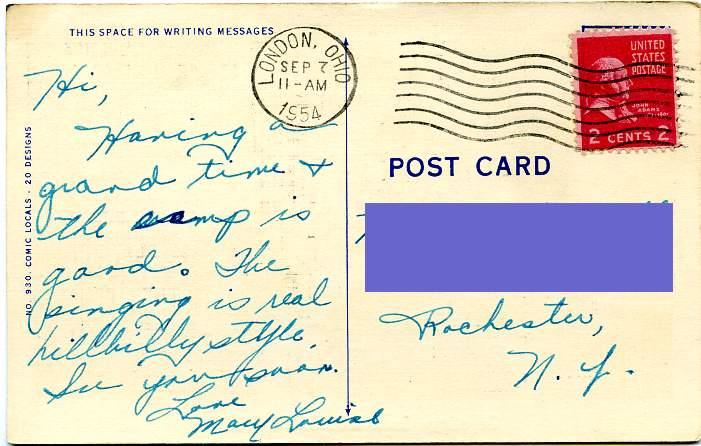 THIS SPACE FOR WRITING MESSAGES
LONDON, OHIO
SEP 7
11-AM
1954
UNITED
STATES
POSTAGE
JOHN
ADAMS
2 CENTS 2
POST CARD
NO. 930. COMIC LOCALS - 20 DESIGNS
Hi,
Having a
grand time +
the camp is
good. The
singing is real
hillbilly style.
See you soon.
Love
Mary Louise
Rochester,
N. Y.